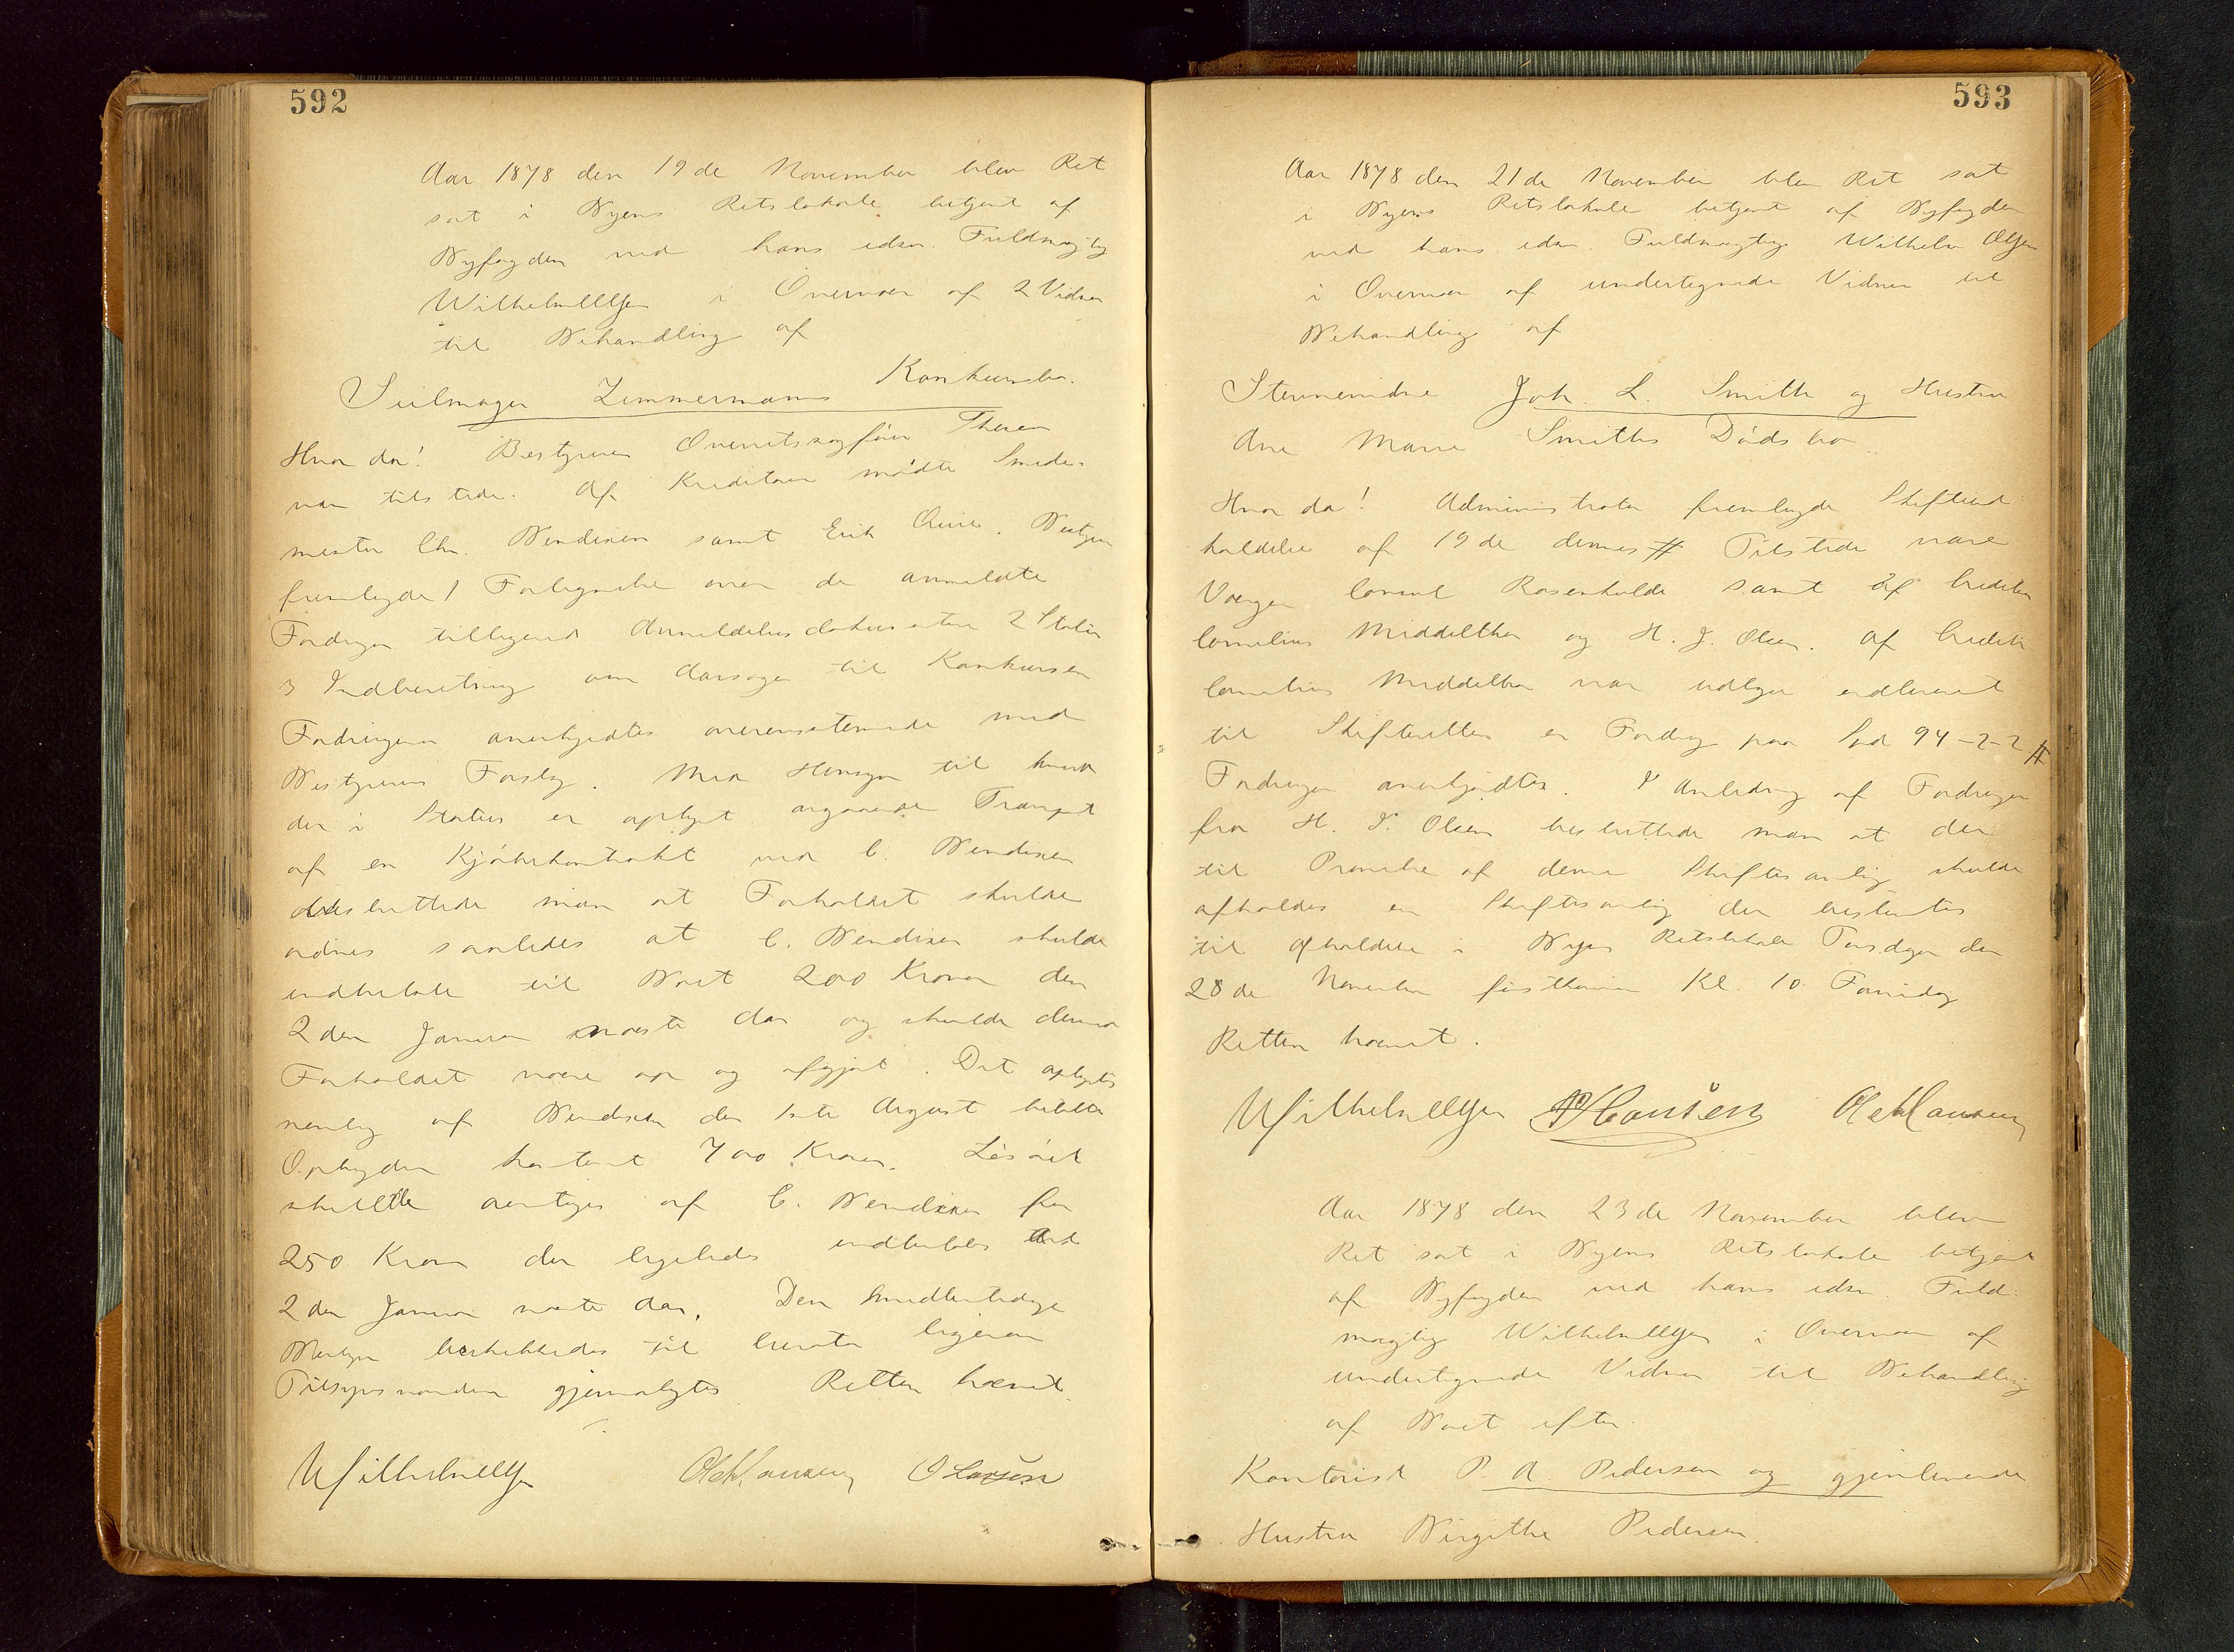 592
Aar 1878 den 19de November blev Ret
sat i Byens Retslokale betjent af
Byfogden ved hans edsv. Fuldmægtig
Wilhelm Olsen i Overvær af 2 Vidner
til Behandling af
Seilmager Zimmermanns Konkursbo.
Hvor da! Bestyreren Overretssagfører
var tilstede. Af Kreditorer mødte Smede-
mester Chr. Bendixen samt Erik Bestyreren
fremlagde 1 Fortegnelse over de anmeldte
Fordringer tilligemed Anmeldelsesdokumenterne 2 Status
3 Indberetning om Aarsagen til Konkursen
Fordringerne anerkjendtes overensstemmende med
Bestyrerens Forslag. Med Hensyn til hvad
der i Status er oplyst angaaende Transport
af en Kjøbekontrakt ved C. Bendixen
besluttede man at Forholdet skulde
ordnes saaledes at C. Bendixen skulde
indbetale til Boet 200 Kroner den
2den Januar næste Aar og skulde dermed
Forholdet være op og afgjort. Det oplystes
nemlig af Bendixen den 1ste August betalte
kontant 700 Kroner. Løsøret
skulde overtages af C. Bendixen for
250 Kroner der ligeledes indbetales
2den Januar næste Aar. Den midlertidige
Bestyrer beskikkedes til ligesom
Tilsynsmanden gjenvalgtes Retten hævet.
Wilhelm Olsen Ole Hansen O Larsen
593
Aar 1878 den 21de November blev Ret sat
i Byens Retslokale betjent af Byfogden
ved hans edsv. Fuldmægtig Wilhelm Olsen
i Overvær af undertegnede Vidner til
Behandling af
Stevnevidne Joh. L. Smith og Hustru
Ane Marie Smiths Dødsbo
Hvor da! Administrator fremlagde Skifteind
kaldelse af 19de dennes # Tilstede vare
Værgen Consul Rosenkilde samt af Creditorer
Cornelius Middelthon og H. J. Olsen. Af Creditor
Cornelius Middelthon var indleveret
til Skifteretten en Fordring paa Spd 94-2-2 #
Fordringen anerkjendtes. I Anledning af Fordringen
fra H. J. Olsen besluttede man at der
til Prøvelse af denne Skiftesamling skulde
afholdes en Skiftesamling der bestemtes
til Afholdelse i Byens Retslokale Torsdagen den
28de November førstkommende Kl. 10 Formiddag
Retten hævet.
Wilhelm Olsen Hansen Ole Hansen
Aar 1878 den 23de November blev
Ret sat i Byens Retslokale betjent
af Byfogden ved hans edsv. Fuld-
mægtig Wilhelm Olsen i Overvær af
undertegnede Vidner til Behandling
af Boet efter
Kontorist P. A. Pedersen og gjenlevende
Hustru Birgithe Pedersen.